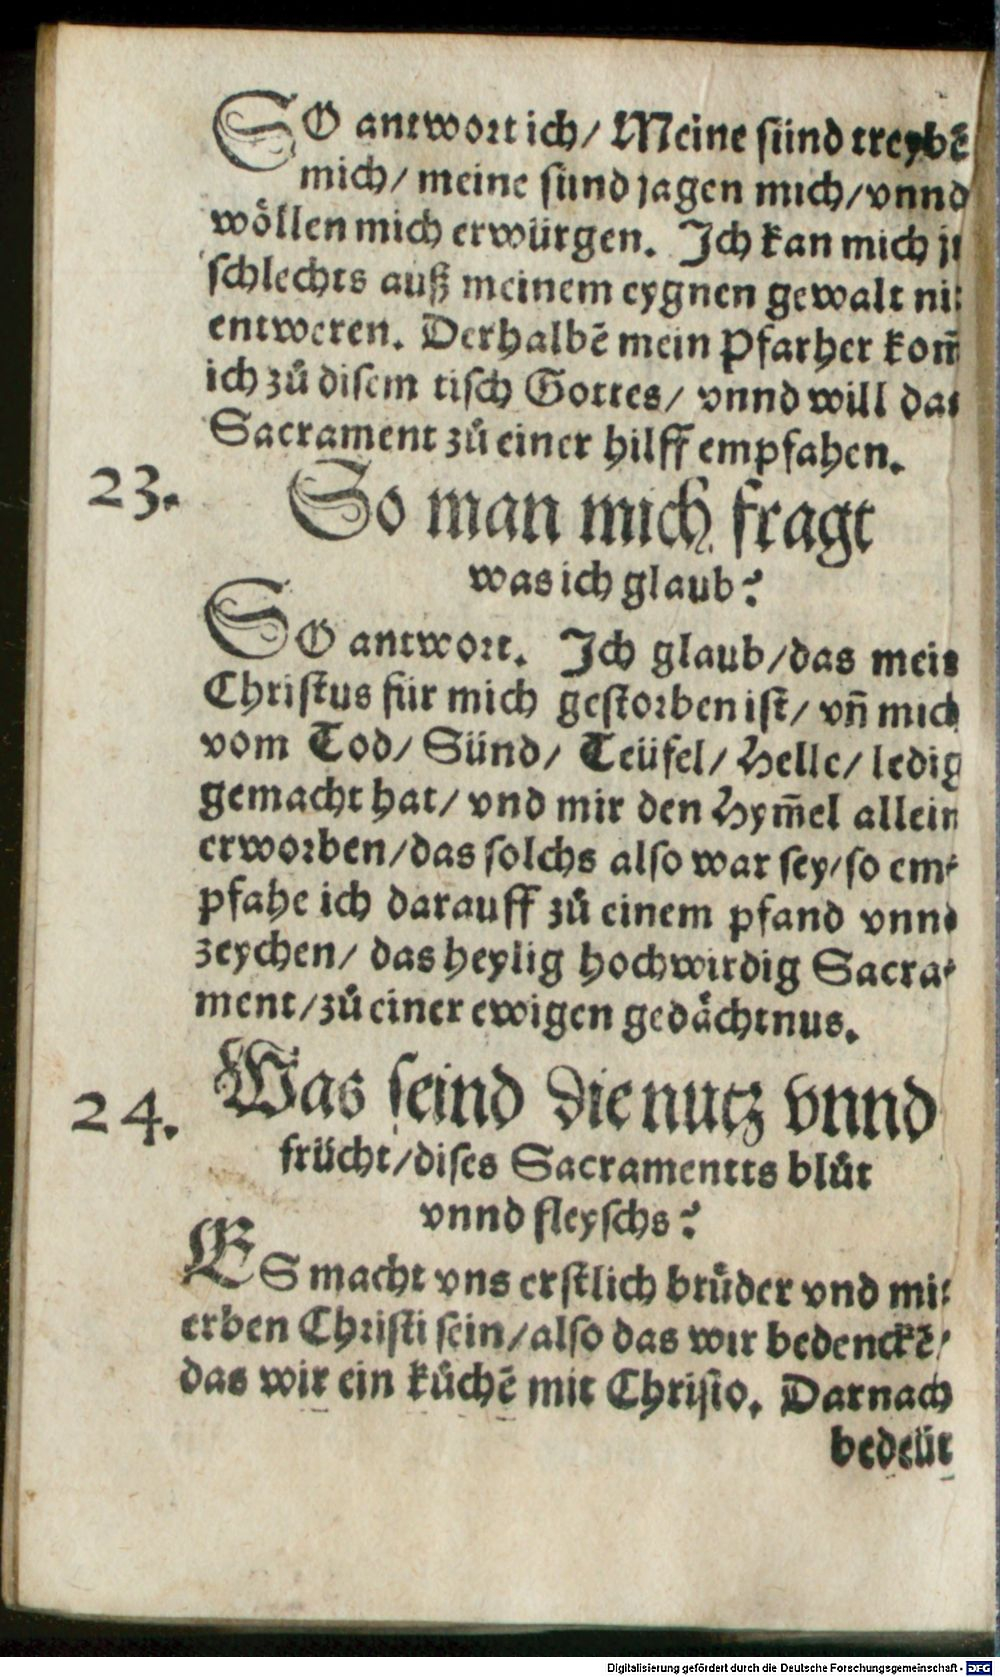 SO antwort ich/ Meine sünd treybẽ
mich/ meine sünd jagen mich/ vnnd
wöllen mich erwürgen. Ich kan mich
schlechts auß meinem eygnen gewalt nit
entweren. Derhalbẽ mein Pfarher kom̃
ich zů disem tisch Gottes/ vnnd will das
Sacrament zů einer hilff empfahen.
23. So man mich fragt
was ich glaub?
SO antwort. Ich glaub/ das mein
Christus für mich gestorben ist/ vñ mich
vom Tod/ Sünd/ Teüfel/ Helle/ ledig
gemacht hat/ vnd mir den Hym̃el allein
erworben/ das solchs also war sey/ so em⸗
pfahe ich darauff zů einem pfand vnnd
zeychen/ das heylig hochwirdig Sacra⸗
ment/ zů einer ewigen gedächtnus.
24. Was seind die nutz vnnd
frücht/ dises Sacramentts blůt
vnnd fleyschs?
ES macht vns erstlich brůder vnd mit
erben Christi sein/ also das wir bedenckẽ/
das wir ein kůchẽ mit Christo. Darnach
bedeüt
Digitalisierung gefördert durch die Deutsche Forschungsgemeinschaft - DFG